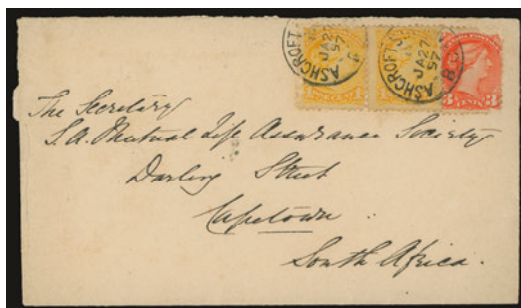 ASHCROFT
JA 27
97
ASHCROFT
JA 27
97
B.C.
3 CENTS 3
The Secretary
S.A. Mutual Life Assurance Society
Darling Street
Capetown
South Africa.